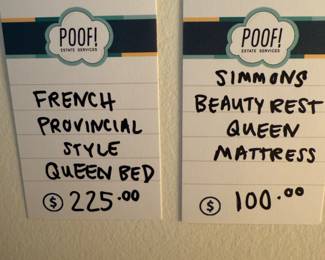 POOF!
ESTATE SERVICES
FRENCH
PROVINCIAL
STYLE
QUEEN BED
$ 225.00
POOF!
ESTATE SERVICES
SIMMONS
BEAUTY REST
QUEEN
MATTRESS
$ 100.00